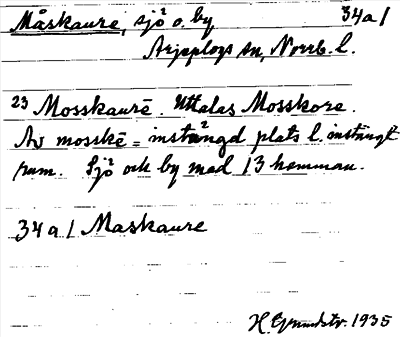 Måskaure, sjö o. by 34a/
Arjeplogs sn, Norrb. l.
23 Mosskaurē. Uttalas Mosskore.
Av mosskē = instängd plats l. instängt
rum. Sjö och by med 13 hemman.
34a/ Maskaure
H. Grundstr. 1935